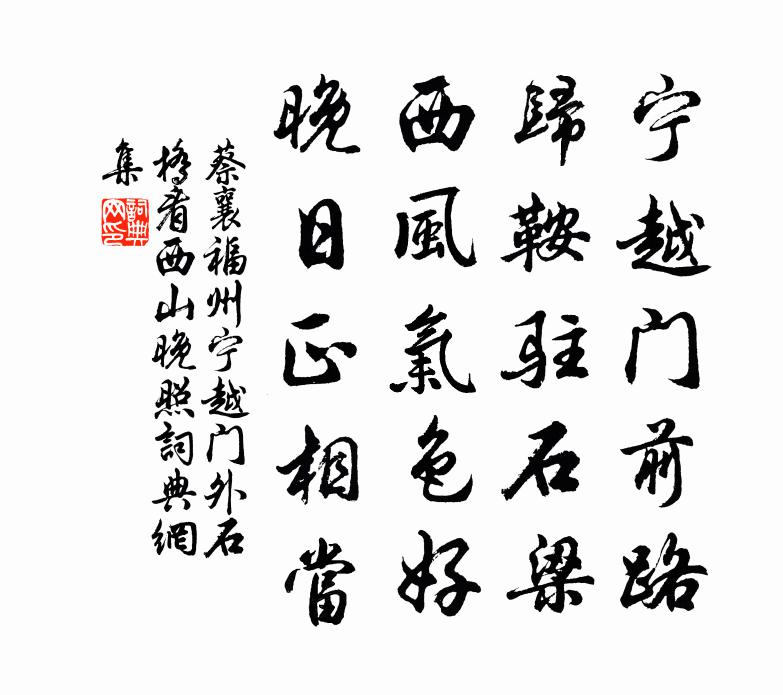 宁越门前路
歸鞍駐石梁
西風氣色好
晚日正相當
蔡襄福州宁越门外石
橋看西山晚照詞典網
集
詞典
网印